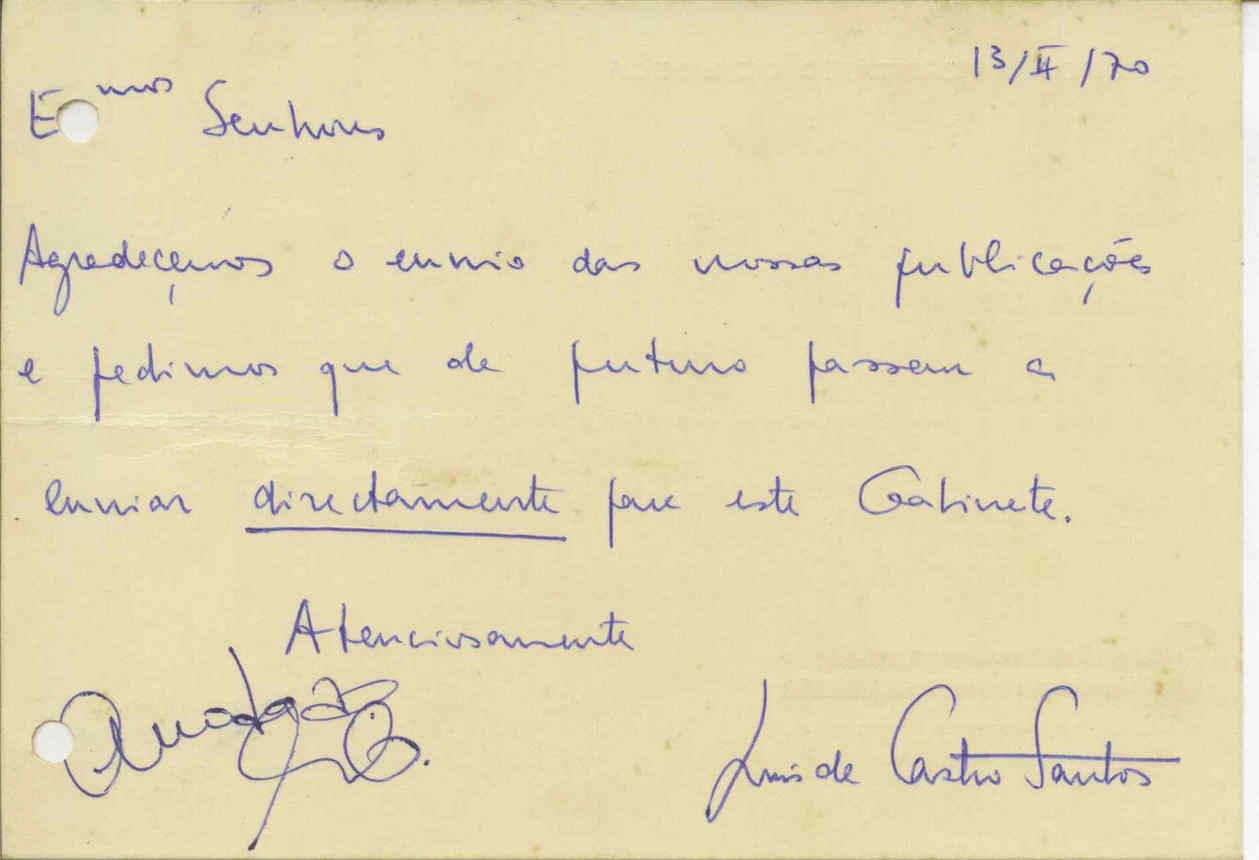 13/II/70
Emos Senhores
Agradecemos o envio das vossas publicações
e pedimos que de futuro passem a
enviar directamente para este Gabinete.
Atenciosamente
Luis de Castro Santos